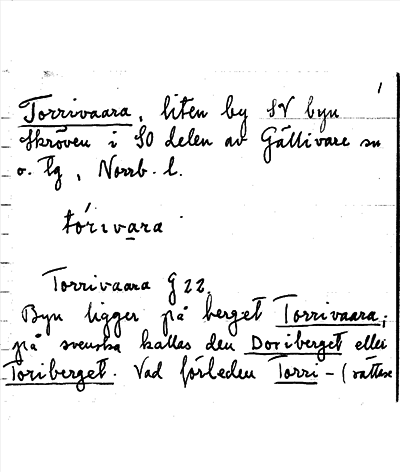 1
Torrivaara, liten by SV byn
Skröven i SO delen av Gällivare sn
o. tg, Norrb. l.
tórıvara
Torrivaara G 22.
Byn ligger på berget Torrivaara;
på svenska kallas den Doriberget eller
Toriberget. Vad förleden Torri- (rättare